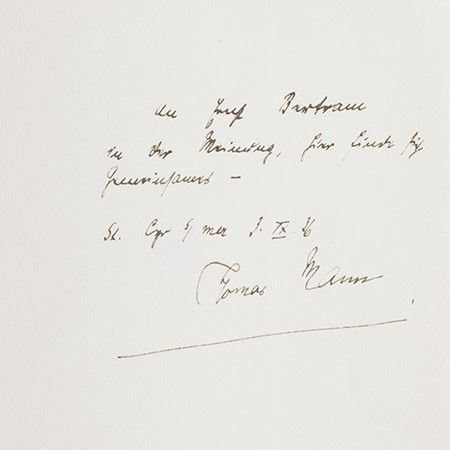 An Josef Bertram
in der Meinung, hier finde sich
Gemeinsames –
St. Cyr s/ mer IX. 36
Thomas Mann